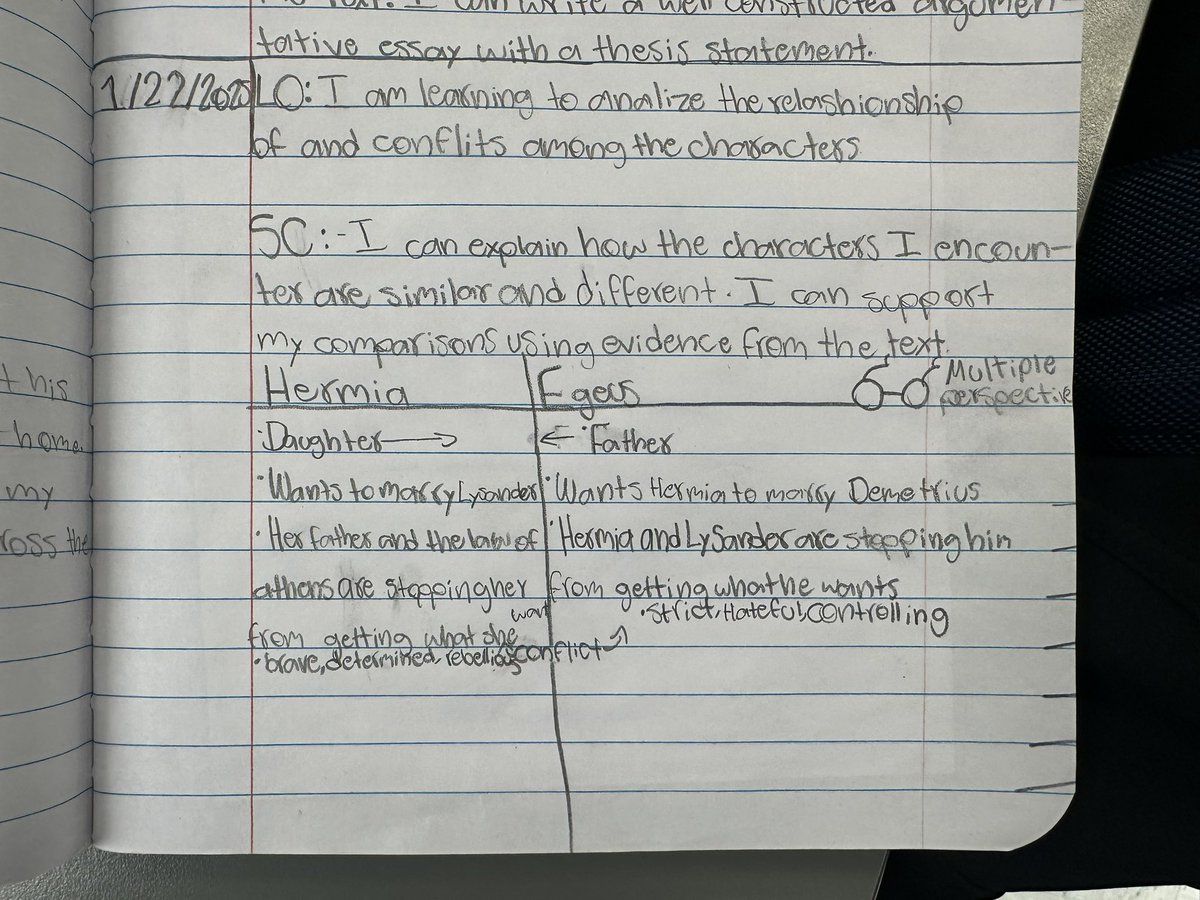 I can write a well constructed argumen-
tative essay with a thesis statement.
1/22/2025 LO: I am learning to analize the relashionship
of and conflits among the characters
SC:-I can explain how the characters I encoun-
ter are similar and different. I can support
my comparisons using evidence from the text.
Hermia Egeus Multiple
perspective
·Daughter→ ←·Father
·Wants to marry Lysander ·Wants Hermia to marry Demetrius
·Her father and the law of Hermia and Lysander are stopping him
athens are stopping her from getting what he wants
from getting what she want ·strict, Hateful, controlling
·brave, determined, rebellious conflict
this
home.
my
ross the